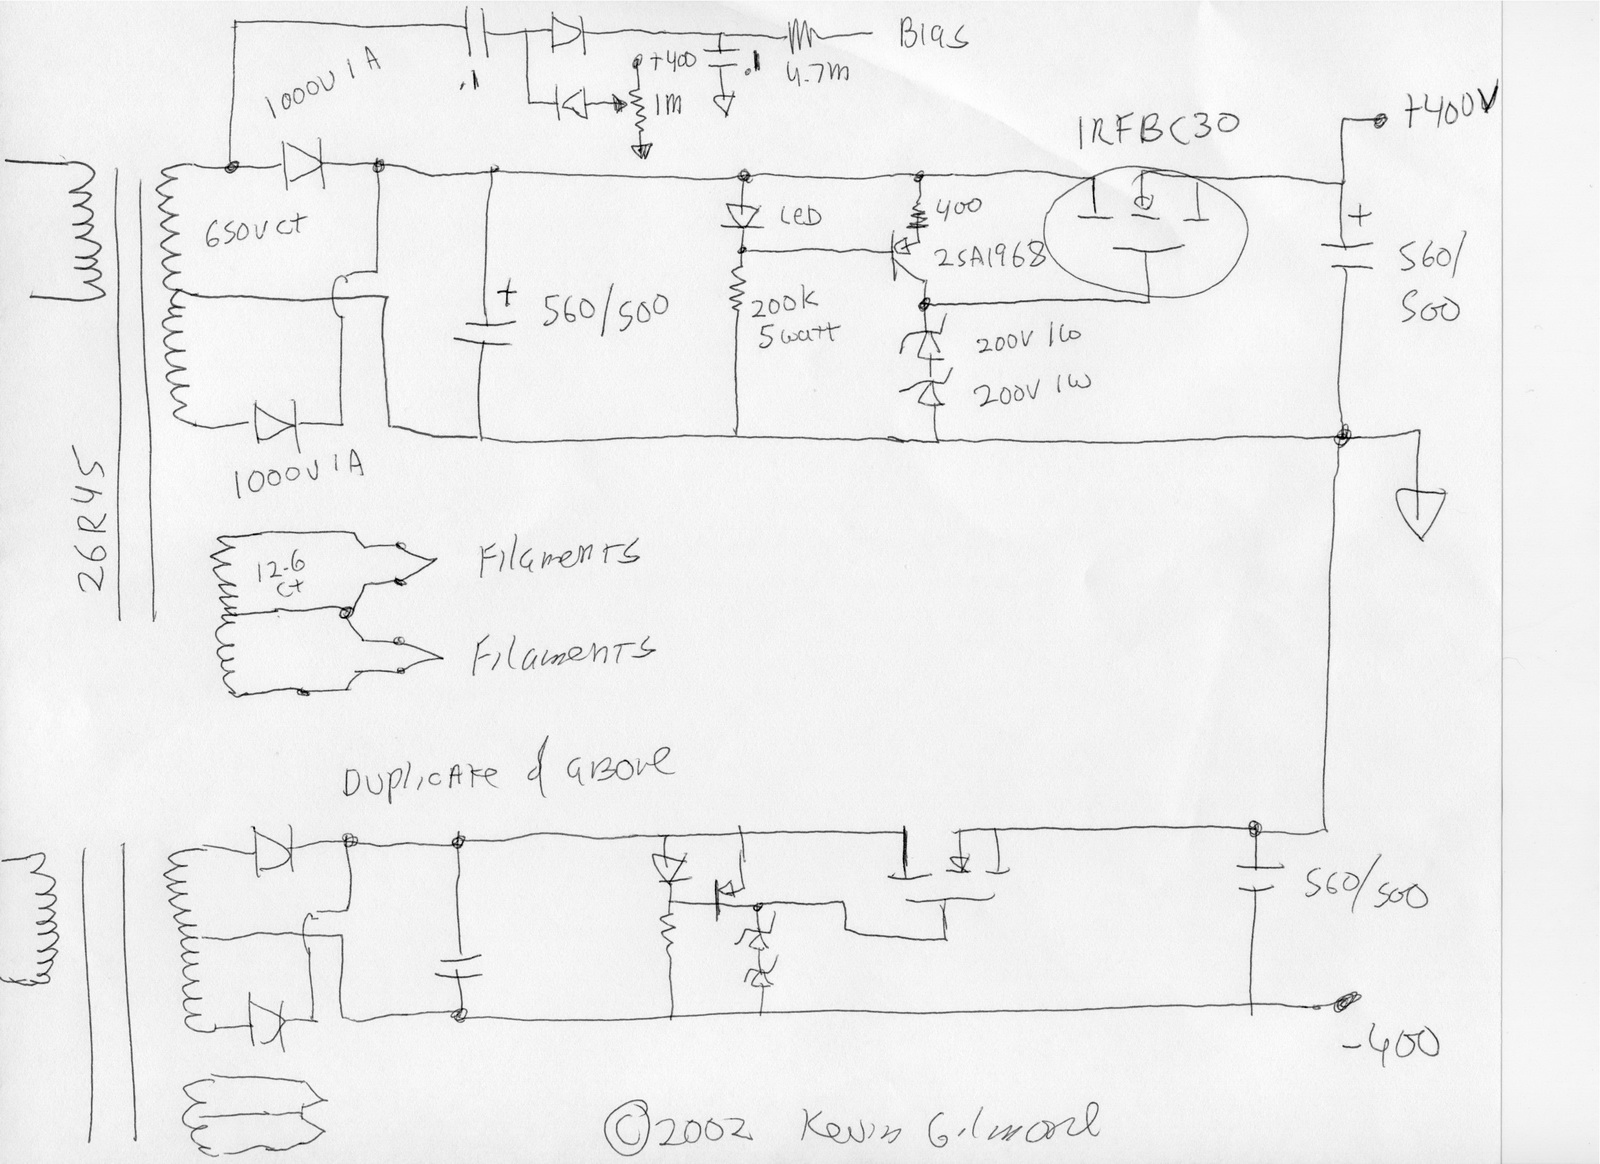 Bias
.1
+400
.1
4.7m
1000V 1A
1m
IRFBC30
+400V
650Vct
LED
400
2SA1968
+
560/500
200K
5watt
200V 1W
200V 1W
+
560/
500
1000V 1A
26R45
12.6
ct
Filaments
Filaments
Duplicate of above
560/500
-400
©2002 Kevin Gilmore